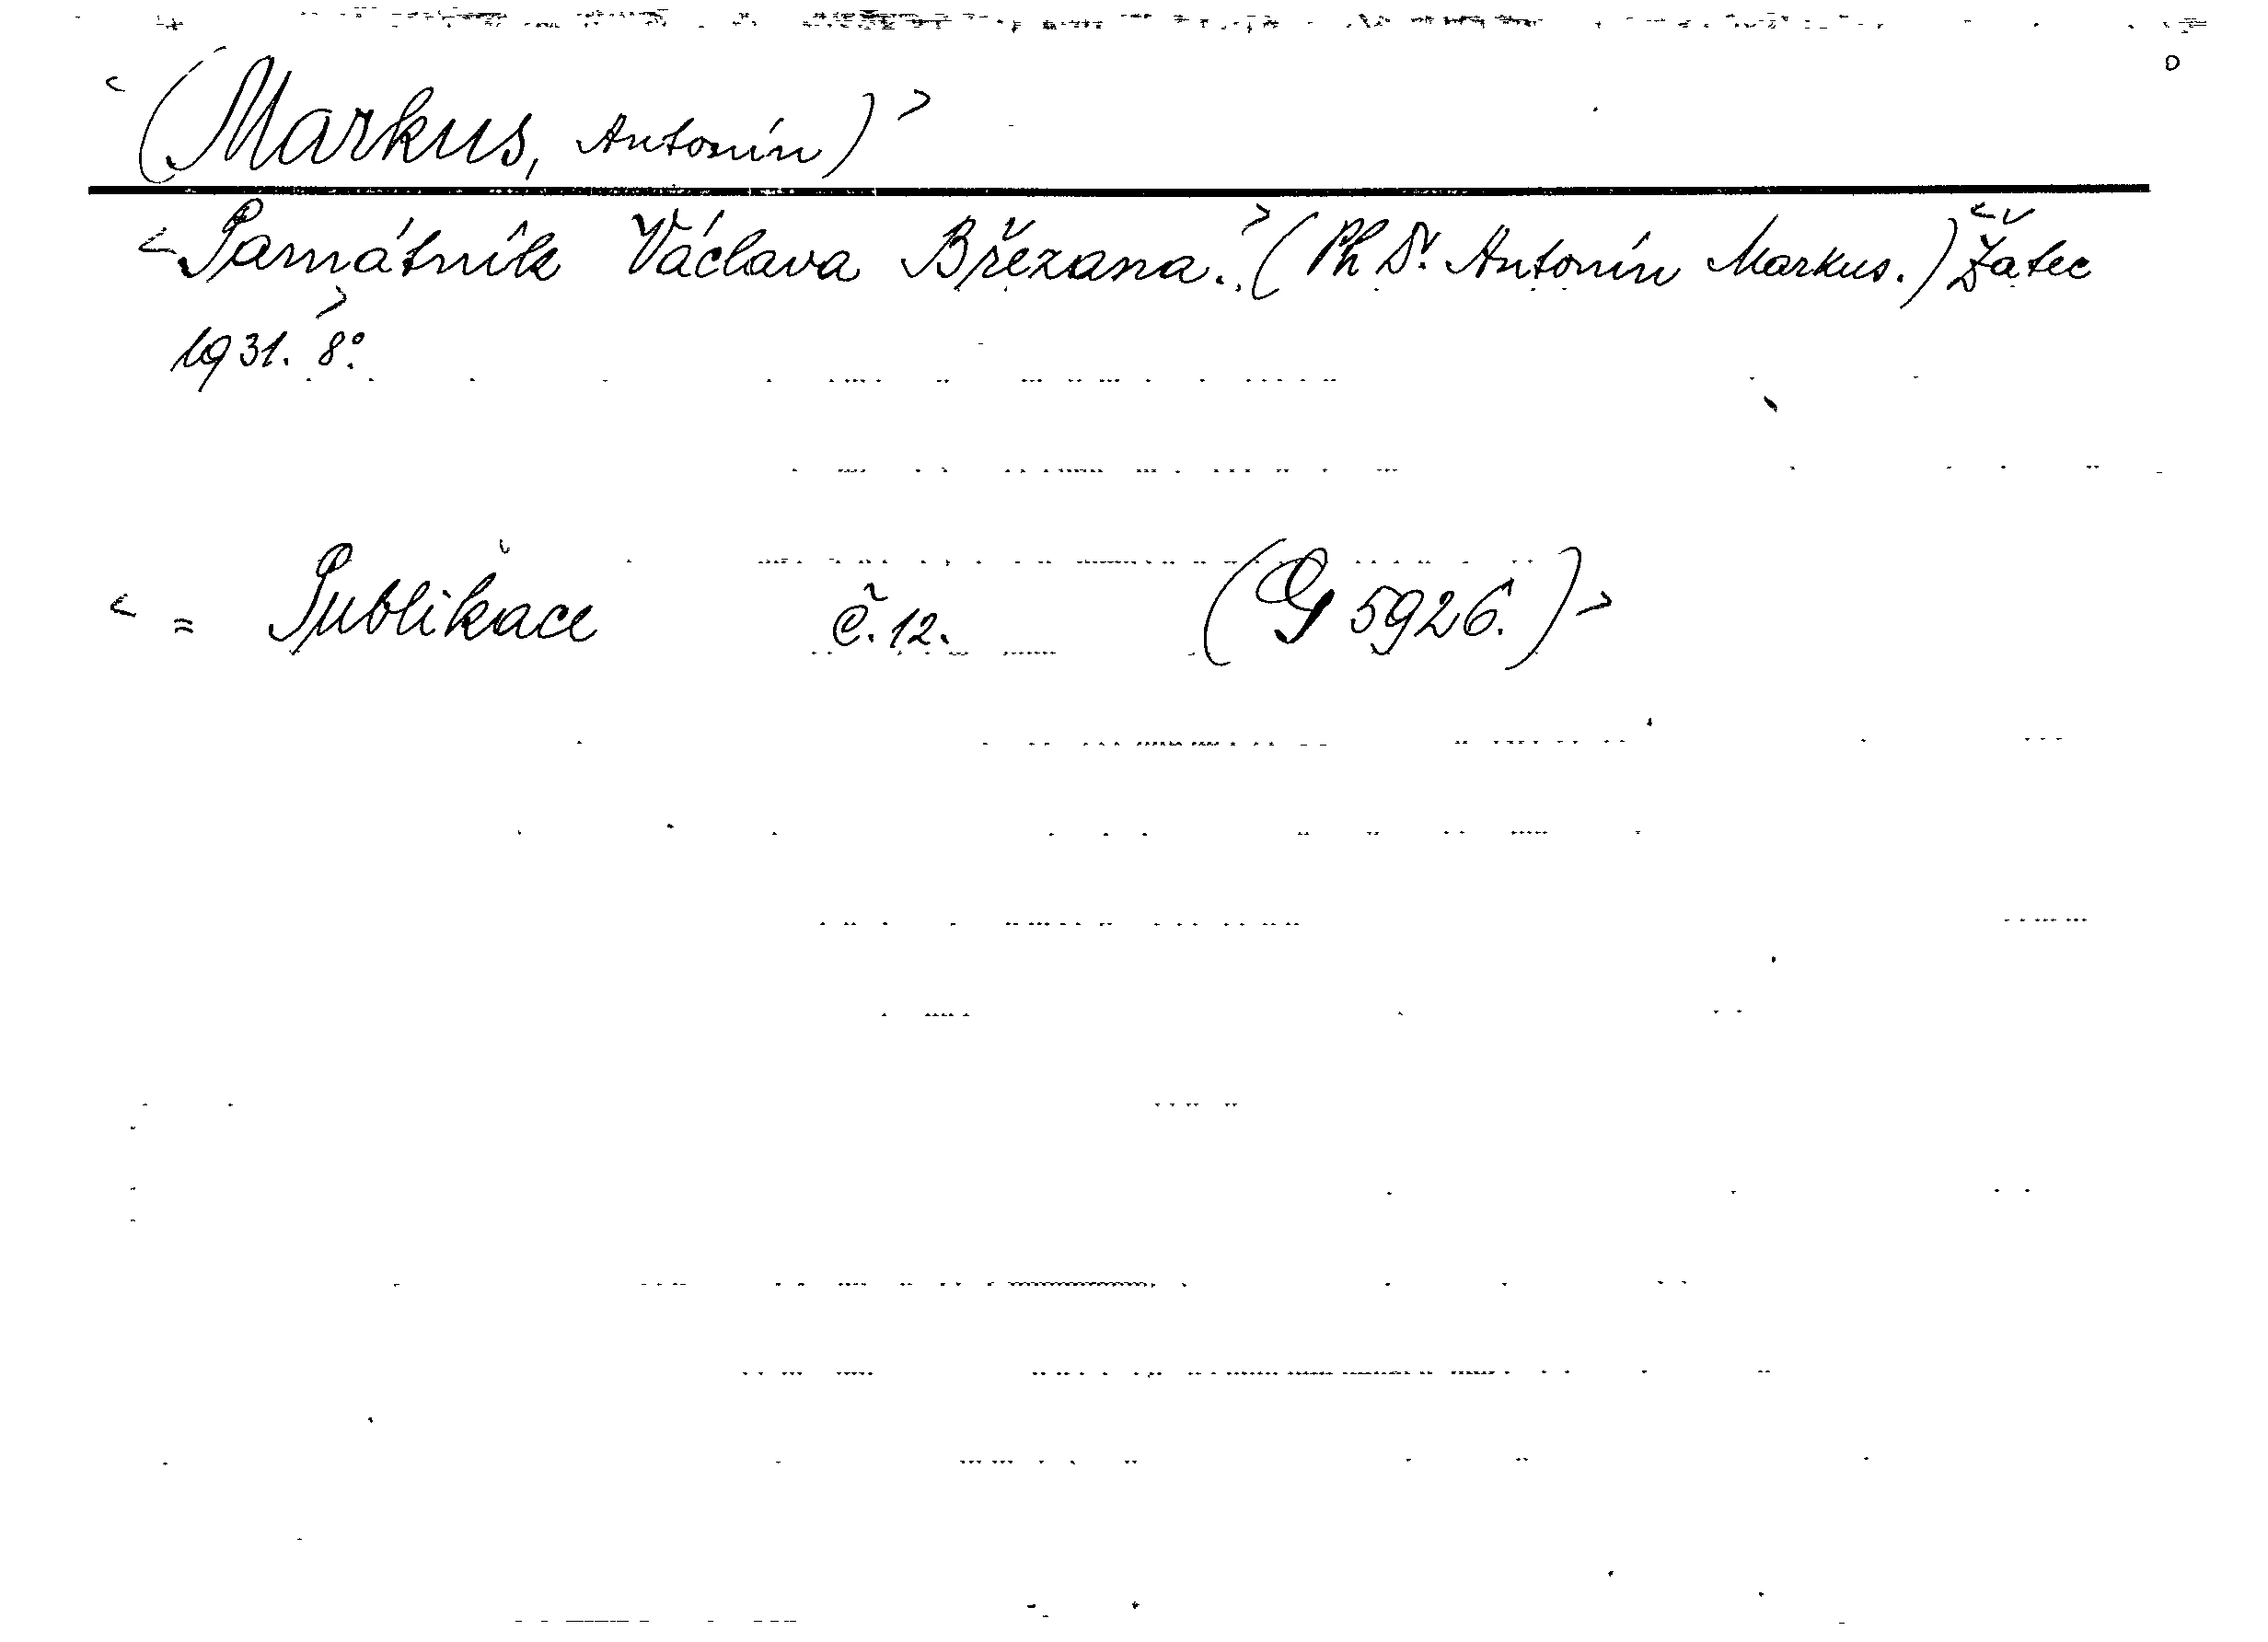 <(Markus, Antonín)>
<Památník Václava Březana.>(Ph Dr. Antonín Markus.)<Žatec
1931.> 8°.
<= Publikace č. 12. (G 5926.)>